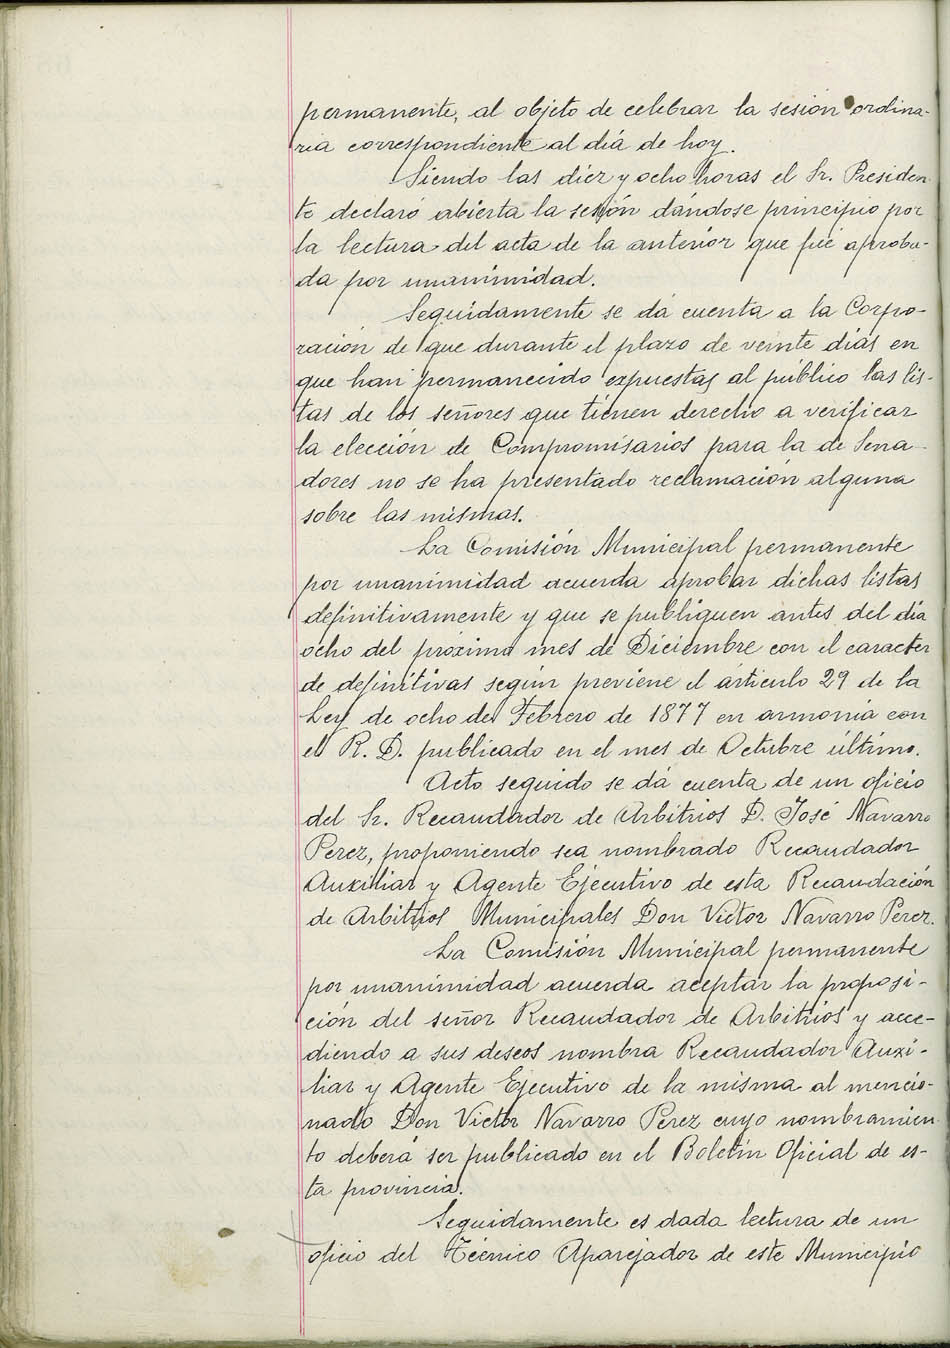 permanente, al objeto de celebrar la sesión ordina-
ria correspondiente al día de hoy.
Siendo las diez y ocho horas el Sr. Presiden-
te declaró abierta la sesión dándose principio por
la lectura del acta de la anterior que fué aproba-
da por unanimidad.
Seguidamente se dá cuenta a la Corpo-
ración de que durante el plazo de veinte días en
que han permanecido expuestas al público las lis-
tas de los señores que tienen derecho a verificar
la elección de Compromisarios para la de Sena-
dores no se ha presentado reclamación alguna
sobre las mismas.
La Comisión Municipal permanente
por unanimidad acuerda aprobar dichas listas
definitivamente y que se publiquen antes del día
ocho del próximo mes de Diciembre con el caracter
de definitivas según previene el artículo 29 de la
Ley de ocho de Febrero de 1877 en armonía con
el R. D. publicado en el mes de Octubre último.
Acto seguido se dá cuenta de un oficio
del Sr. Recaudador de Arbitrios D. José Navarro
Perez, proponiendo sea nombrado Recaudador
Auxiliar y Agente Ejecutivo de esta Recaudación
de Arbitrios Municipales Don Victor Navarro Perez.
La Comisión Municipal permanente
por unanimidad acuerda aceptar la proposi-
ción del señor Recaudador de Arbitrios y acce-
diendo a sus deseos nombra Recaudador Auxi-
liar y Agente Ejecutivo de la misma al mencio-
nado Don Victor Navarro Perez cuyo nombramien-
to deberá ser publicado en el Boletín Oficial de es-
ta provincia.
Seguidamente es dada lectura de un
oficio del Técnico Aparejador de este Municipio